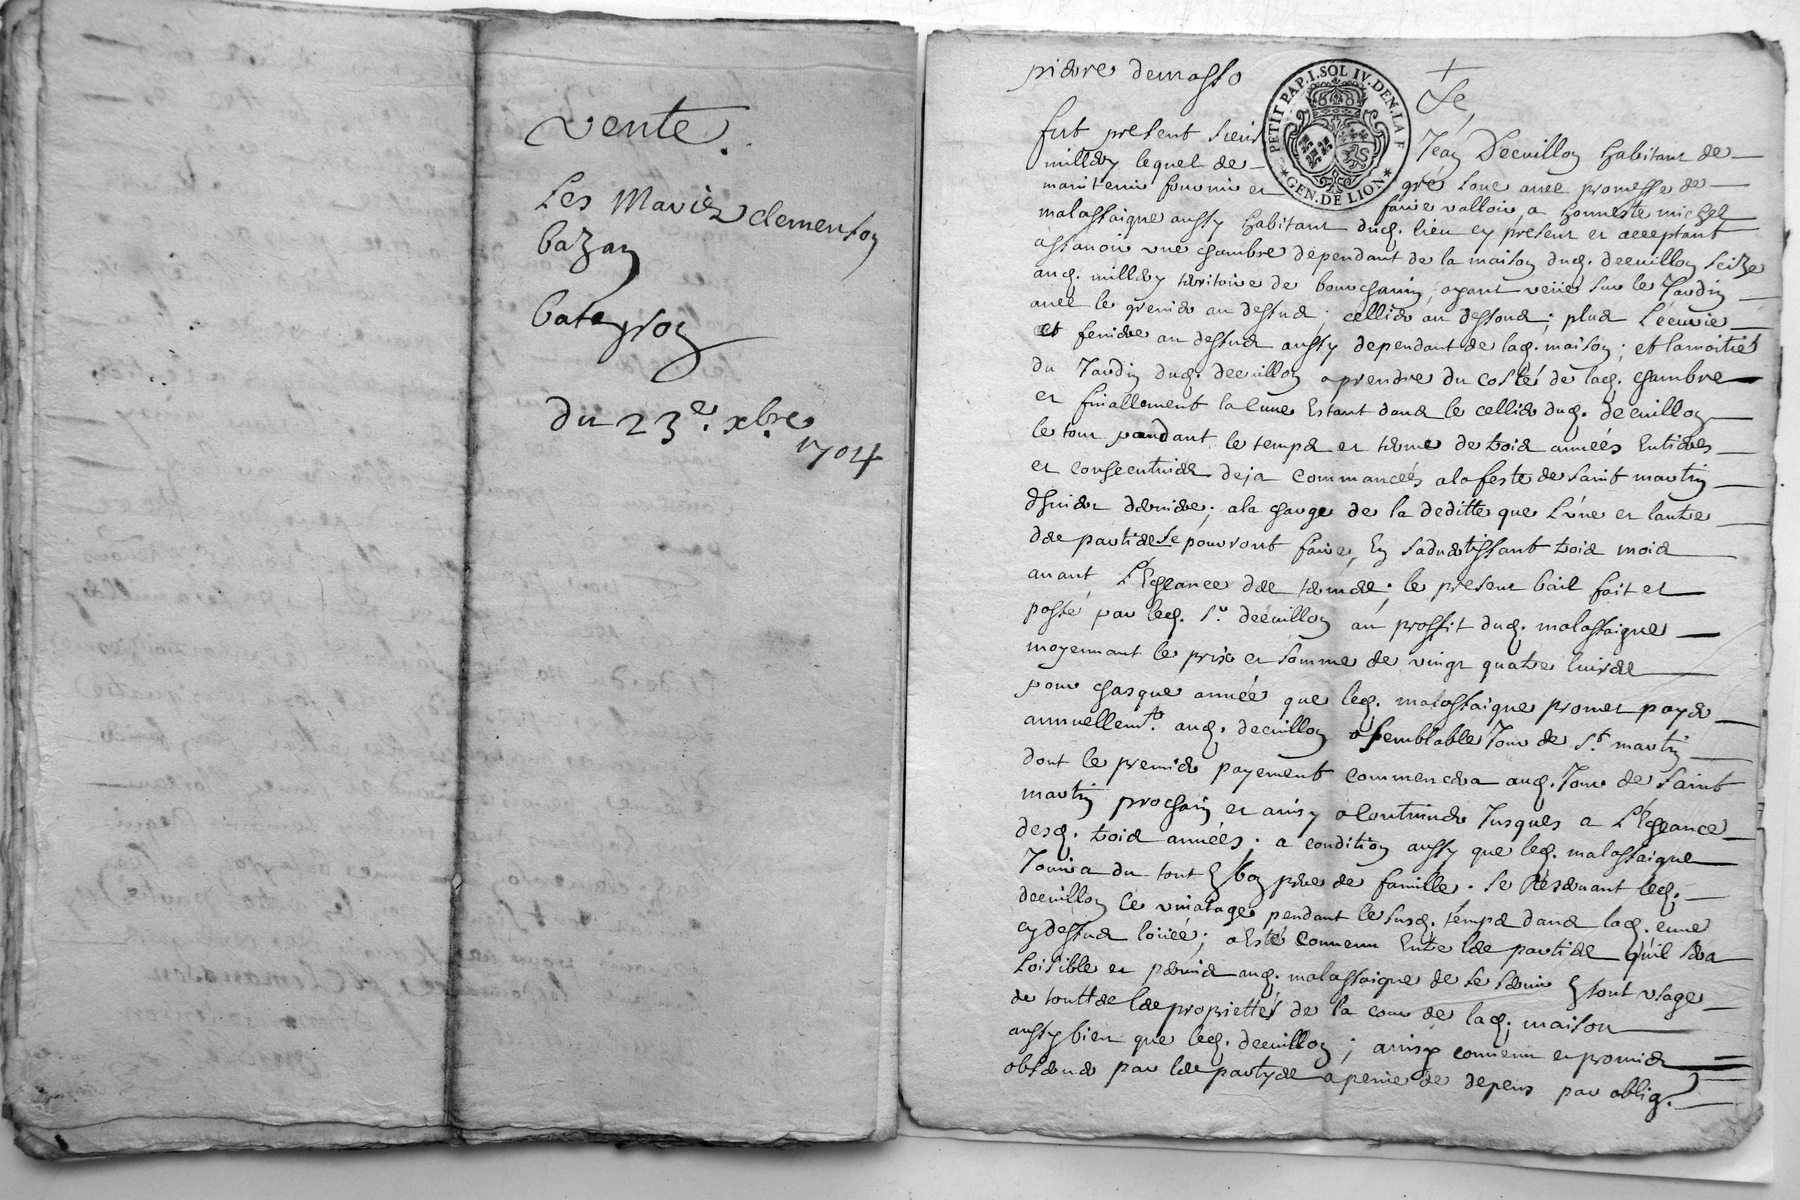 vente.
Les Mariez clemenson
bazan
bateyron
du 23e. xbre
1704
pierre demasso
PETIT PAP. I. SOL IV. DEN. LA F
GEN. DE LION
fut present sieur Jean Decuillon habitant de
millery lequel de gré loue avec promesse de
maintenir fournir et faire valloir a honneste michel
malassaigne aussy habitant dud. lieu cy present et acceptant
assavoir une chambre dependant de la maison dud. decuillon seize
aud. millery teritoire de bourchanin, ayant veüe sur le Jardin
avec le grenier au dessus; cellier au dessous; plus L'ecurie
et feniere au dessus aussy dependant de lad. maison; et la moitié
du Jardin dud. decuillon a prendre du costé de lad. chambre
et finallement la cuve Estant dans le cellier dud. decuillon
le tout pendant le temps et terme de trois années Entieres
et consecutives deja commancées a la feste de saint martin
d'hiver derniere; a la charge de la deditte que L'une et lautre
des parties se pourront faire, En s'advertissant trois mois
avant L'Echeance des termes; le present bail fait et
passé par led. Sr. decuillon au proffit dud. malassaigne
moyennant le prix et somme de vingt quatre livres
pour chasque année que led. malassaigne promet payer
annuellemt. aud. decuillon a semblable Jour de St. martin
dont le premier payement commencera aud. Jour de saint
martin prochain et ainsy a continuer Jusques a L'Echeance
desd. trois années; a condition aussy que led. malassaigne
Jouira du tout En bon pere de famille. se Reservant led.
decuillon le vinatage pendant le susd. temps dans lad. cuve
cy dessus loüée; a Esté convenu Entre les parties qu'il sera
loisible et permis aud. malassaigne de se servir En tout usage
de touttes les proprietés de la cour de lad. maison
aussy bien que led. decuillon; ainsy convenu et promis
observer par les partyes a peine de depens par oblig.